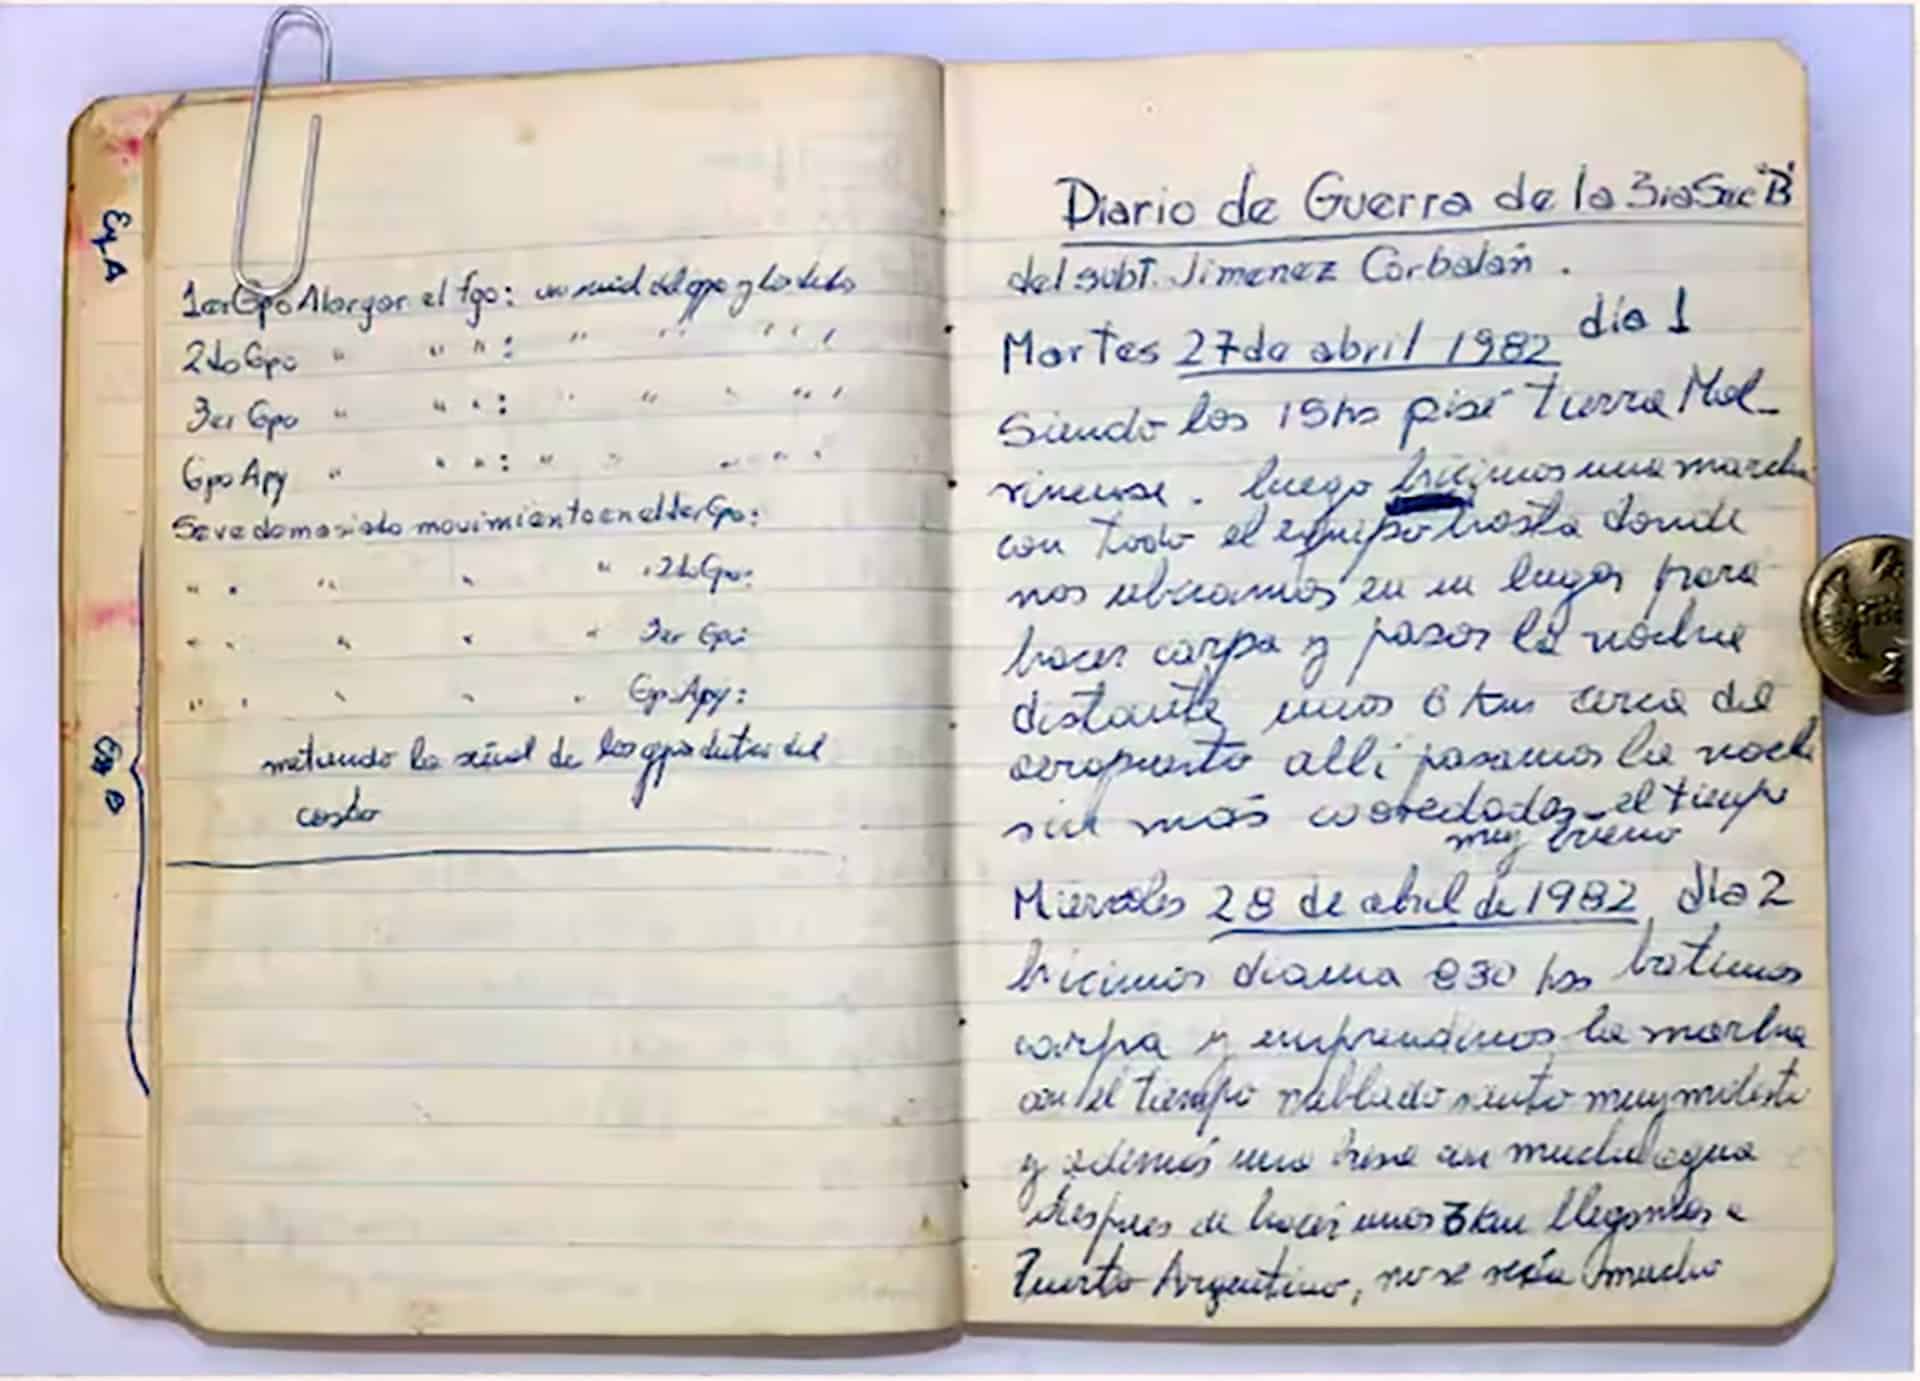 Ej A
Gpo
1er Gpo Alargar el fgo: un
2do Gpo " " " : " " " " "
3er Gpo " " " : " " " " "
Gpo Apy " " " : " " " " "
Se ve demasiado movimiento en el 1er Gpo:
" " " " " 2do Gpo:
" " " " " 3er Gpo:
" " " " " Gpo Apy:
metiendo la señal de los gpos detras del
casco
Diario de Guerra de la 3ia Sec "B"
del subt. Jimenez Corbalán .
Martes 27 de abril 1982 día 1
Siendo las 15 hs pisé tierra Mal-
vinense . luego hicimos una marcha
con todo el equipo hasta donde
nos ubicamos en un lugar para
hacer carpa y pasar la noche
distante unos 6 Km cerca del
aeropuerto alli pasamos la noche
sin más el tiempo
muy bueno
Miercoles 28 de abril de 1982 día 2
hicimos diana 830 hs batimos
carpa y emprendimos la marcha
con el tiempo nublado viento muy molesto
y además una con mucha agua
despues de hacer unos 3 km llegamos a
Puerto Argentino, no se veía mucho